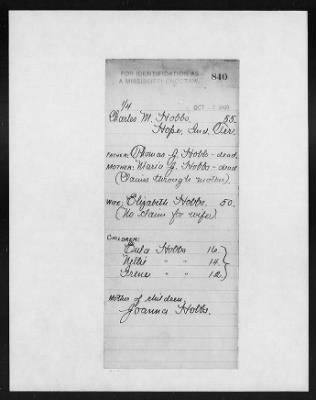 FOR IDENTIFICATION AS
A MISSISSIPPI CHOCTAW.
840
OCT
1/4
Charles M. Hobbs, 55.
Hope, Ind. Terr.
FATHER: Thomas G. Hobbs - dead.
MOTHER: Maria G. Hobbs - dead
(Claims through mother).
WIFE: Elizabeth Hobbs. 50.
(No claim for wife)
CHILDREN:
Eula Hobbs 16.
Nellie " " 14.
Irene " " 12.
Mother of children,
Joanna Hobbs.